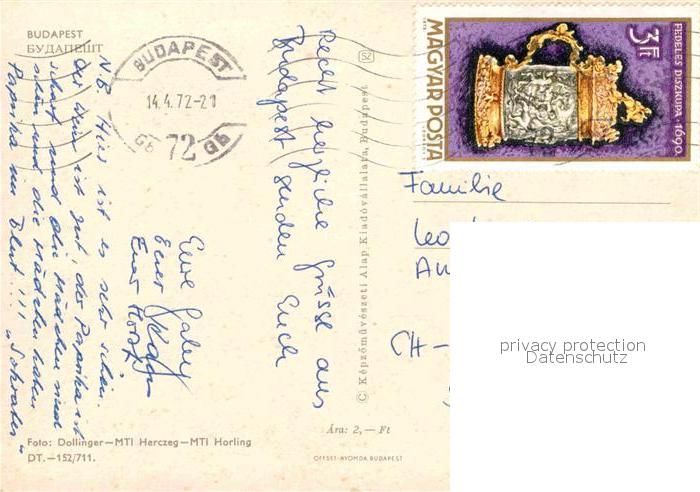 BUDAPEST
БУДАПЕШТ
BUDAPEST
14.4.72-21
Gb 72 Gb
MAGYAR POSTA
3Ft
FEDELES DÍSZKUPA · 1690.
Recht herzliche Grüsse aus
Budapest senden Euch
Eure
Euer
Euer
N.B. Hier ist es sehr schön.
Der Wein ist gut, der Paprika ist
scharf und die Mädchen sind
schön und die Mädchen haben
Paprika im Blut!!!
Familie
CH-
SZ
© Képzőművészeti Alap Kiadóvállalata, Budapest
Ára: 2,— Ft
Foto: Dollinger—MTI Herczeg—MTI Horling
DT.—152/711.
OFFSET-NYOMDA BUDAPEST
privacy protection
Datenschutz